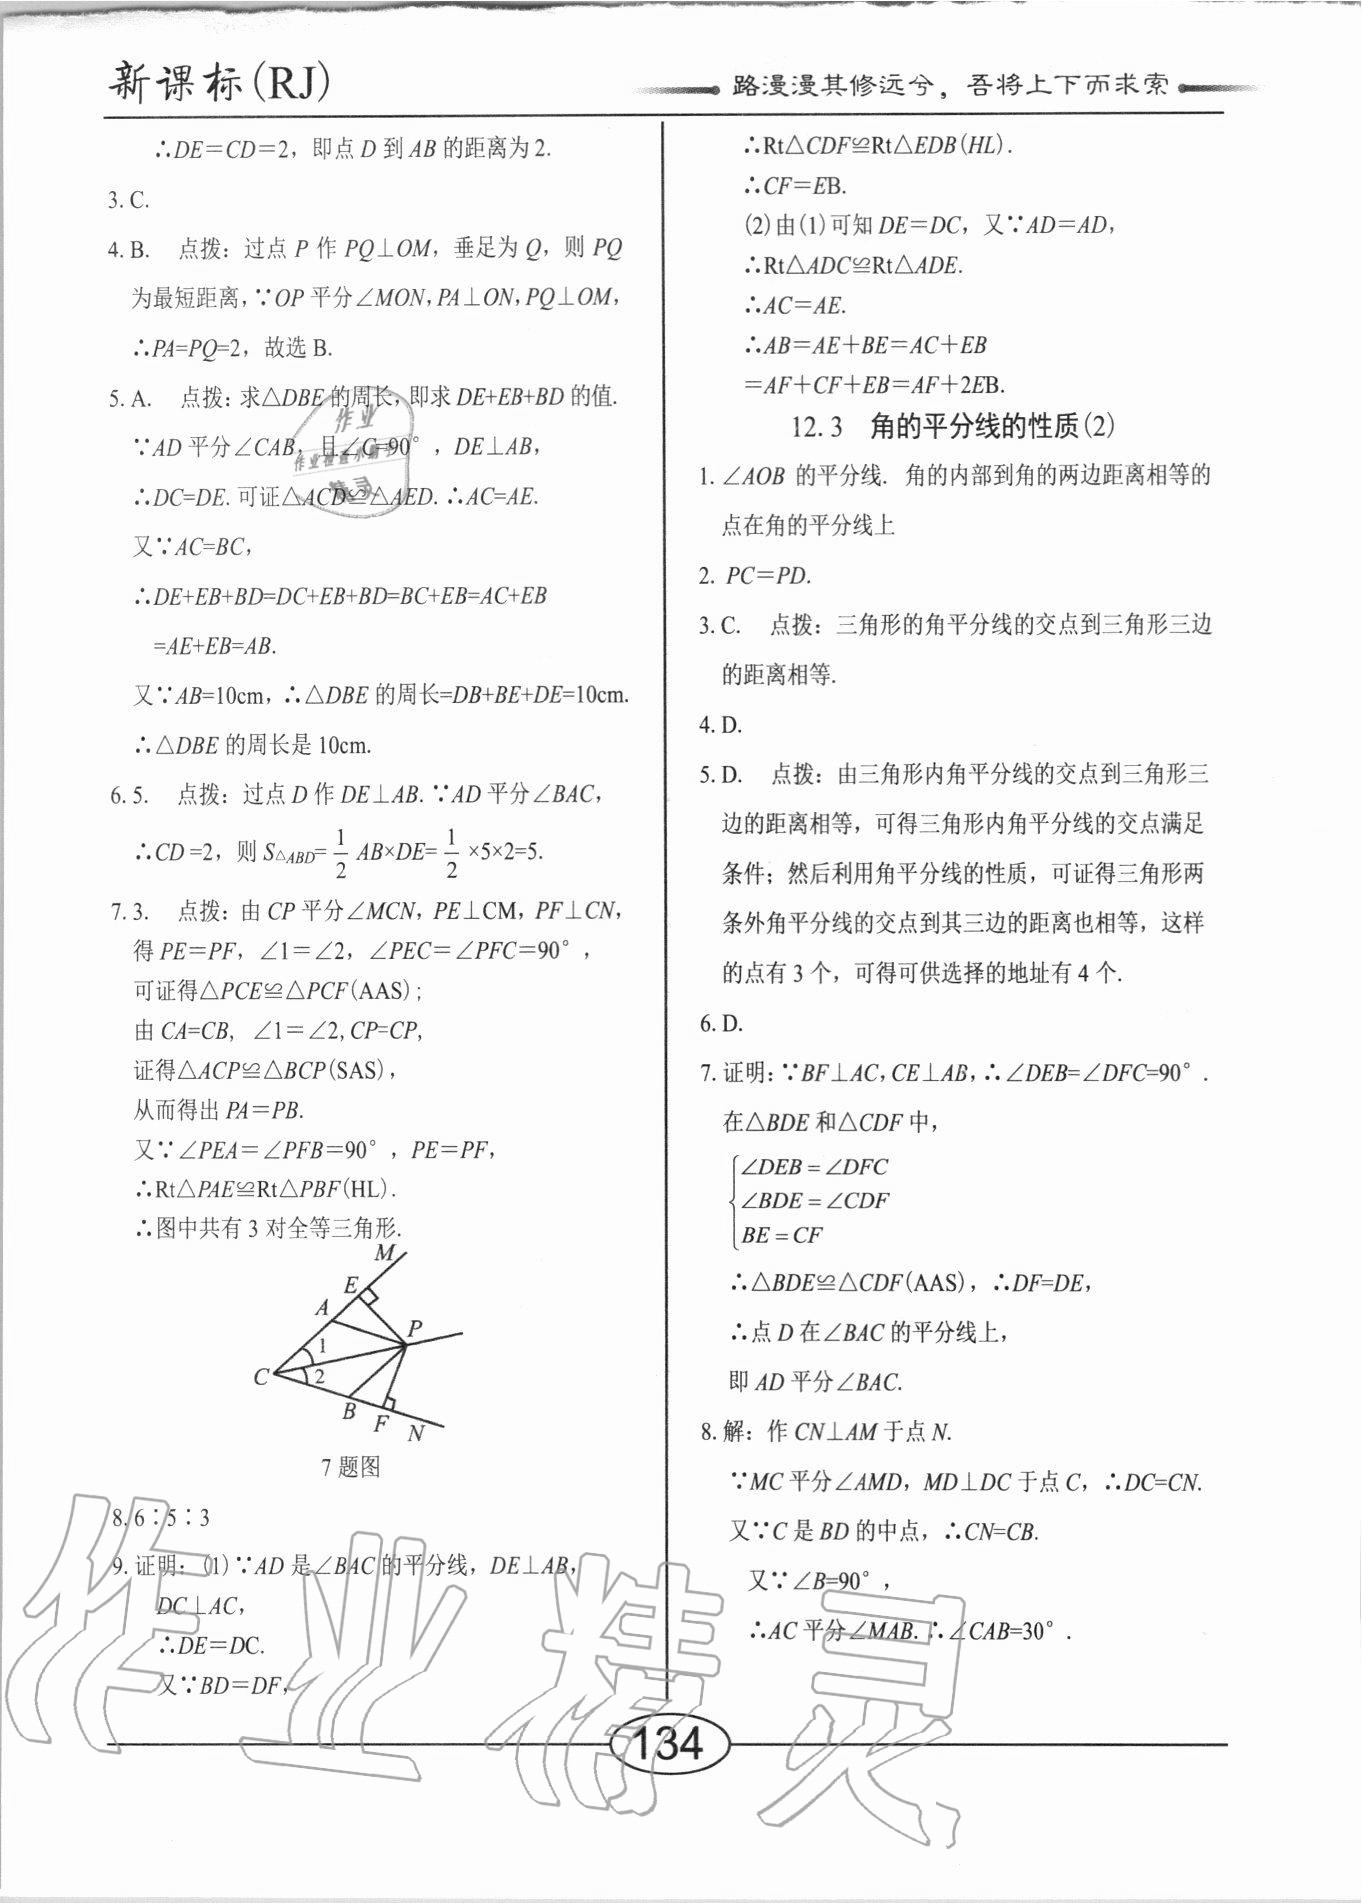 新课标(RJ)
路漫漫其修远兮，吾将上下而求索
∴DE＝CD＝2，即点 D 到 AB 的距离为 2.
3. C.
4. B.　点拨：过点 P 作 PQ⊥OM，垂足为 Q，则 PQ
为最短距离，∵OP 平分∠MON，PA⊥ON，PQ⊥OM，
∴PA=PQ=2，故选 B.
5. A.　点拨：求△DBE 的周长，即求 DE+EB+BD 的值.
∵AD 平分∠CAB，且∠C=90°，DE⊥AB，
∴DC=DE. 可证△ACD≌△AED. ∴AC=AE.
又∵AC=BC，
∴DE+EB+BD=DC+EB+BD=BC+EB=AC+EB
=AE+EB=AB.
又∵AB=10cm，∴△DBE 的周长=DB+BE+DE=10cm.
∴△DBE 的周长是 10cm.
6. 5.　点拨：过点 D 作 DE⊥AB. ∵AD 平分∠BAC，
∴CD =2，则 S△ABD= 1/2 AB×DE= 1/2 ×5×2=5.
7. 3.　点拨：由 CP 平分∠MCN，PE⊥CM，PF⊥CN，
得 PE＝PF，∠1＝∠2，∠PEC＝∠PFC＝90°，
可证得△PCE≌△PCF(AAS)；
由 CA=CB，∠1＝∠2，CP=CP，
证得△ACP≌△BCP(SAS)，
从而得出 PA＝PB.
又∵∠PEA＝∠PFB＝90°，PE＝PF，
∴Rt△PAE≌Rt△PBF(HL).
∴图中共有 3 对全等三角形.
M
E
A
P
1
C
2
B
F
N
7 题图
8. 6∶5∶3
9. 证明：(1)∵AD 是∠BAC 的平分线，DE⊥AB，
DC⊥AC，
∴DE＝DC.
又∵BD＝DF，
∴Rt△CDF≌Rt△EDB(HL).
∴CF＝EB.
(2)由(1)可知 DE＝DC，又∵AD＝AD，
∴Rt△ADC≌Rt△ADE.
∴AC＝AE.
∴AB＝AE＋BE＝AC＋EB
＝AF＋CF＋EB＝AF＋2EB.
12.3　角的平分线的性质(2)
1. ∠AOB 的平分线.  角的内部到角的两边距离相等的
点在角的平分线上
2. PC＝PD.
3. C.　点拨：三角形的角平分线的交点到三角形三边
的距离相等.
4. D.
5. D.　点拨：由三角形内角平分线的交点到三角形三
边的距离相等，可得三角形内角平分线的交点满足
条件；然后利用角平分线的性质，可证得三角形两
条外角平分线的交点到其三边的距离也相等，这样
的点有 3 个，可得可供选择的地址有 4 个.
6. D.
7. 证明：∵BF⊥AC，CE⊥AB，∴∠DEB=∠DFC=90°.
在△BDE 和△CDF 中，
∠DEB = ∠DFC
∠BDE = ∠CDF
BE = CF
∴△BDE≌△CDF(AAS)，∴DF=DE，
∴点 D 在∠BAC 的平分线上，
即 AD 平分∠BAC.
8. 解：作 CN⊥AM 于点 N.
∵MC 平分∠AMD，MD⊥DC 于点 C，∴DC=CN.
又∵C 是 BD 的中点，∴CN=CB.
又∵∠B=90°，
∴AC 平分∠MAB. ∴∠CAB=30°.
134
作业
作业检查小助手
精灵
作业精灵